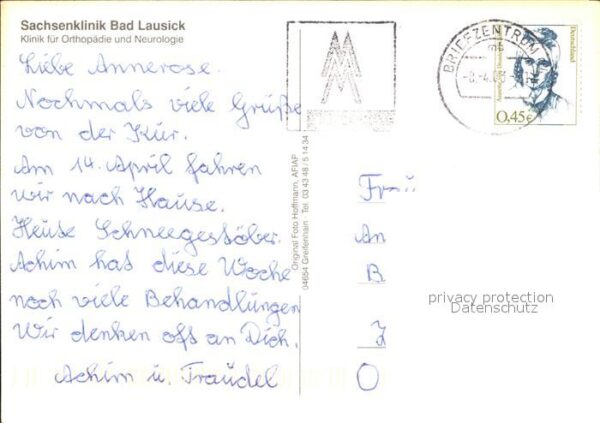 Sachsenklinik Bad Lausick
Klinik für Orthopädie und Neurologie
Liebe Annerose.
Nochmals viele Grüße
von der Kur.
Am 14. April fahren
wir nach Hause.
Heute Schneegestöber.
Achim hat diese Woche
noch viele Behandlungen
Wir denken oft an Dich.
Achim u. Traudel
Original Foto Hoffmann, AFIAP
04654 Greifenhain Tel. 03 43 48 / 5 14 34
BRIEFZENTRUM
Deutschland
0,45€
Frau
An
B
Z
O
privacy protection
Datenschutz